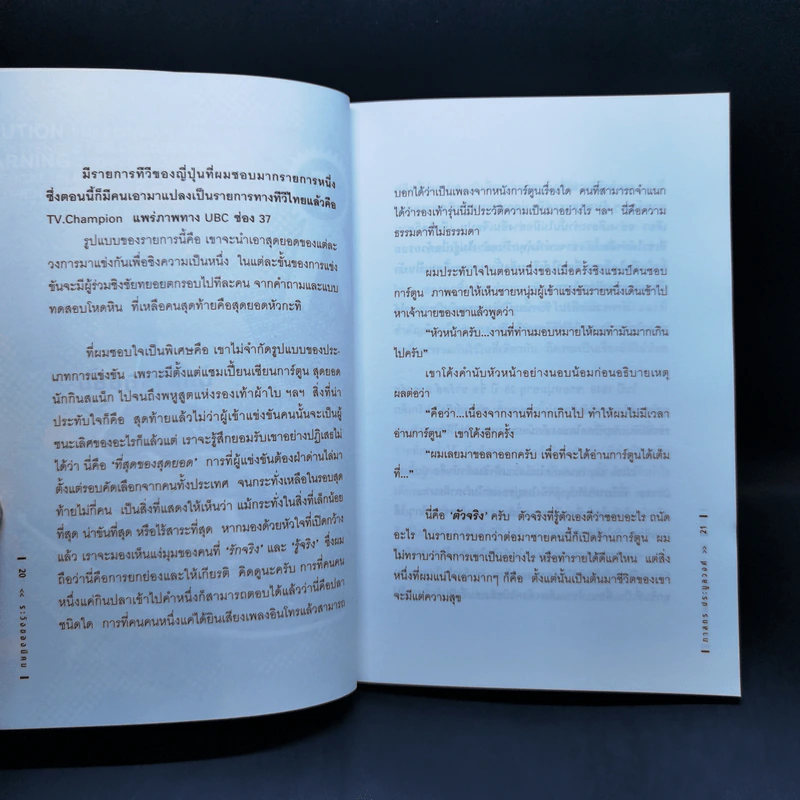 มีรายการทีวีของญี่ปุ่นที่ผมชอบมากรายการหนึ่ง
ซึ่งตอนนี้ก็มีคนเอามาแปลงเป็นรายการทางทีวีไทยแล้วคือ
TV.Champion แพร่ภาพทาง UBC ช่อง 37
รูปแบบของรายการนี้คือ เขาจะนำเอาสุดยอดของแต่ละ
วงการมาแข่งกันเพื่อชิงความเป็นหนึ่ง ในแต่ละขั้นของการแข่ง
ขันจะมีผู้ร่วมชิงชัยทยอยตกรอบไปทีละคน จากคำถามและแบบ
ทดสอบโหดหิน ที่เหลือคนสุดท้ายคือสุดยอดหัวกะทิ
ที่ผมชอบใจเป็นพิเศษคือ เขาไม่จำกัดรูปแบบของประ-
เภทการแข่งขัน เพราะมีตั้งแต่แชมเปี้ยนเซียนการ์ตูน สุดยอด
นักกินสแน็ก ไปจนถึงพหูสูตแห่งรองเท้าผ้าใบ ฯลฯ สิ่งที่น่า
ประทับใจก็คือ สุดท้ายแล้วไม่ว่าผู้เข้าแข่งขันคนนั้นจะเป็นผู้
ชนะเลิศของอะไรก็แล้วแต่ เราจะรู้สึกยอมรับเขาอย่างปฏิเสธไม่
ได้ว่า นี่คือ ‘ที่สุดของสุดยอด’ การที่ผู้แข่งขันต้องฝ่าด่านไล่มา
ตั้งแต่รอบคัดเลือกจากคนทั้งประเทศ จนกระทั่งเหลือในรอบสุด
ท้ายไม่กี่คน เป็นสิ่งที่แสดงให้เห็นว่า แม้กระทั่งในสิ่งที่เล็กน้อย
ที่สุด น่าขันที่สุด หรือไร้สาระที่สุด หากมองด้วยหัวใจที่เปิดกว้าง
แล้ว เราจะมองเห็นแง่มุมของคนที่ ‘รักจริง’ และ ‘รู้จริง’ ซึ่งผม
ถือว่านี่คือการยกย่องและให้เกียรติ คิดดูนะครับ การที่คนคน
หนึ่งแค่กินปลาเข้าไปคำหนึ่งก็สามารถตอบได้แล้วว่านี่คือปลา
ชนิดใด การที่คนคนหนึ่งแค่ได้ยินเสียงเพลงอินโทรแล้วสามารถ
20 <<
บอกได้ว่าเป็นเพลงจากหนังการ์ตูนเรื่องใด คนที่สามารถจำแนก
ได้ว่ารองเท้ารุ่นนี้มีประวัติความเป็นมาอย่างไร ฯลฯ นี่คือความ
ธรรมดาที่ไม่ธรรมดา
ผมประทับใจในตอนหนึ่งของเมื่อครั้งชิงแชมป์คนชอบ
การ์ตูน ภาพฉายให้เห็นชายหนุ่มผู้เข้าแข่งขันรายหนึ่งเดินเข้าไป
หาเจ้านายของเขาแล้วพูดว่า
“หัวหน้าครับ...งานที่ท่านมอบหมายให้ผมทำมันมากเกิน
ไปครับ”
เขาโค้งคำนับหัวหน้าอย่างนอบน้อมก่อนอธิบายเหตุ
ผลต่อว่า
“คือว่า...เนื่องจากงานที่มากเกินไป ทำให้ผมไม่มีเวลา
อ่านการ์ตูน” เขาโค้งอีกครั้ง
“ผมเลยมาขอลาออกครับ เพื่อที่จะได้อ่านการ์ตูนได้เต็ม
ที่...”
นี่คือ ‘ตัวจริง’ ครับ ตัวจริงที่รู้ตัวเองดีว่าชอบอะไร ถนัด
อะไร ในรายการบอกว่าต่อมาชายคนนี้ก็เปิดร้านการ์ตูน ผม
ไม่ทราบว่ากิจการเขาเป็นอย่างไร หรือทำรายได้ดีแค่ไหน แต่สิ่ง
หนึ่งที่ผมแน่ใจเอามากๆ ก็คือ ตั้งแต่นั้นเป็นต้นมาชีวิตของเขา
จะมีแต่ความสุข
>> 21